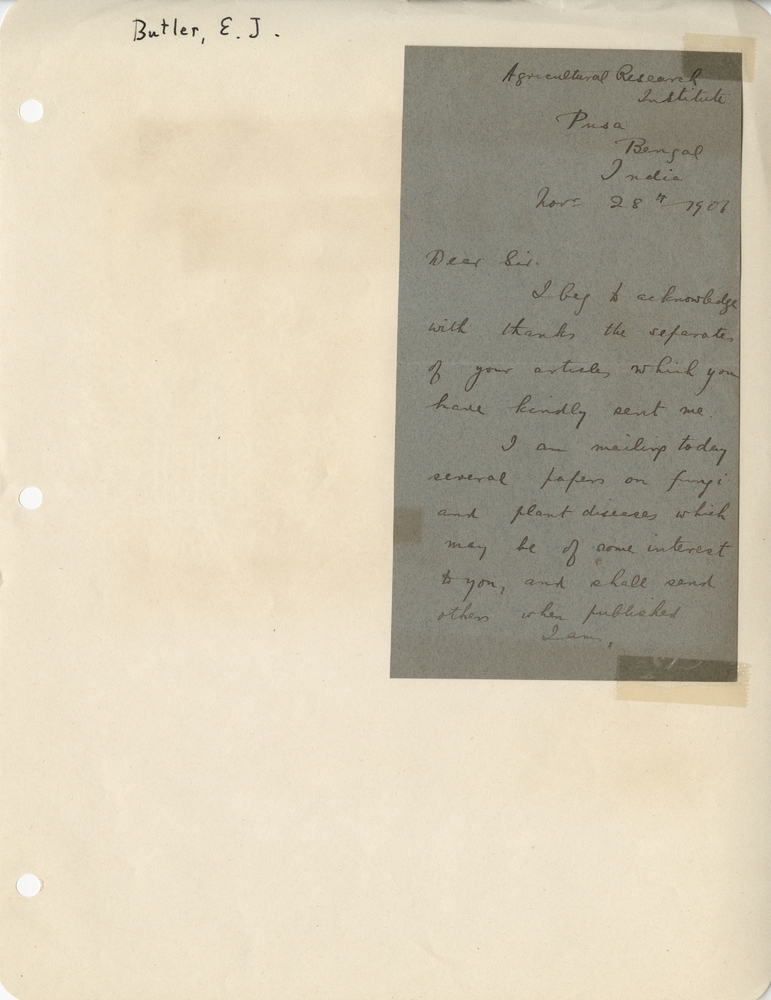 Butler, E. J.
Agricultural Research
Institute
Pusa
Bengal
India
Novr 28th 1906
Dear Sir.
I beg to acknowledge
with thanks the separates
of your articles which you
have kindly sent me.
I am mailing today
several papers on fungi
and plant diseases which
may be of some interest
to you, and shall send
others when published
I am,